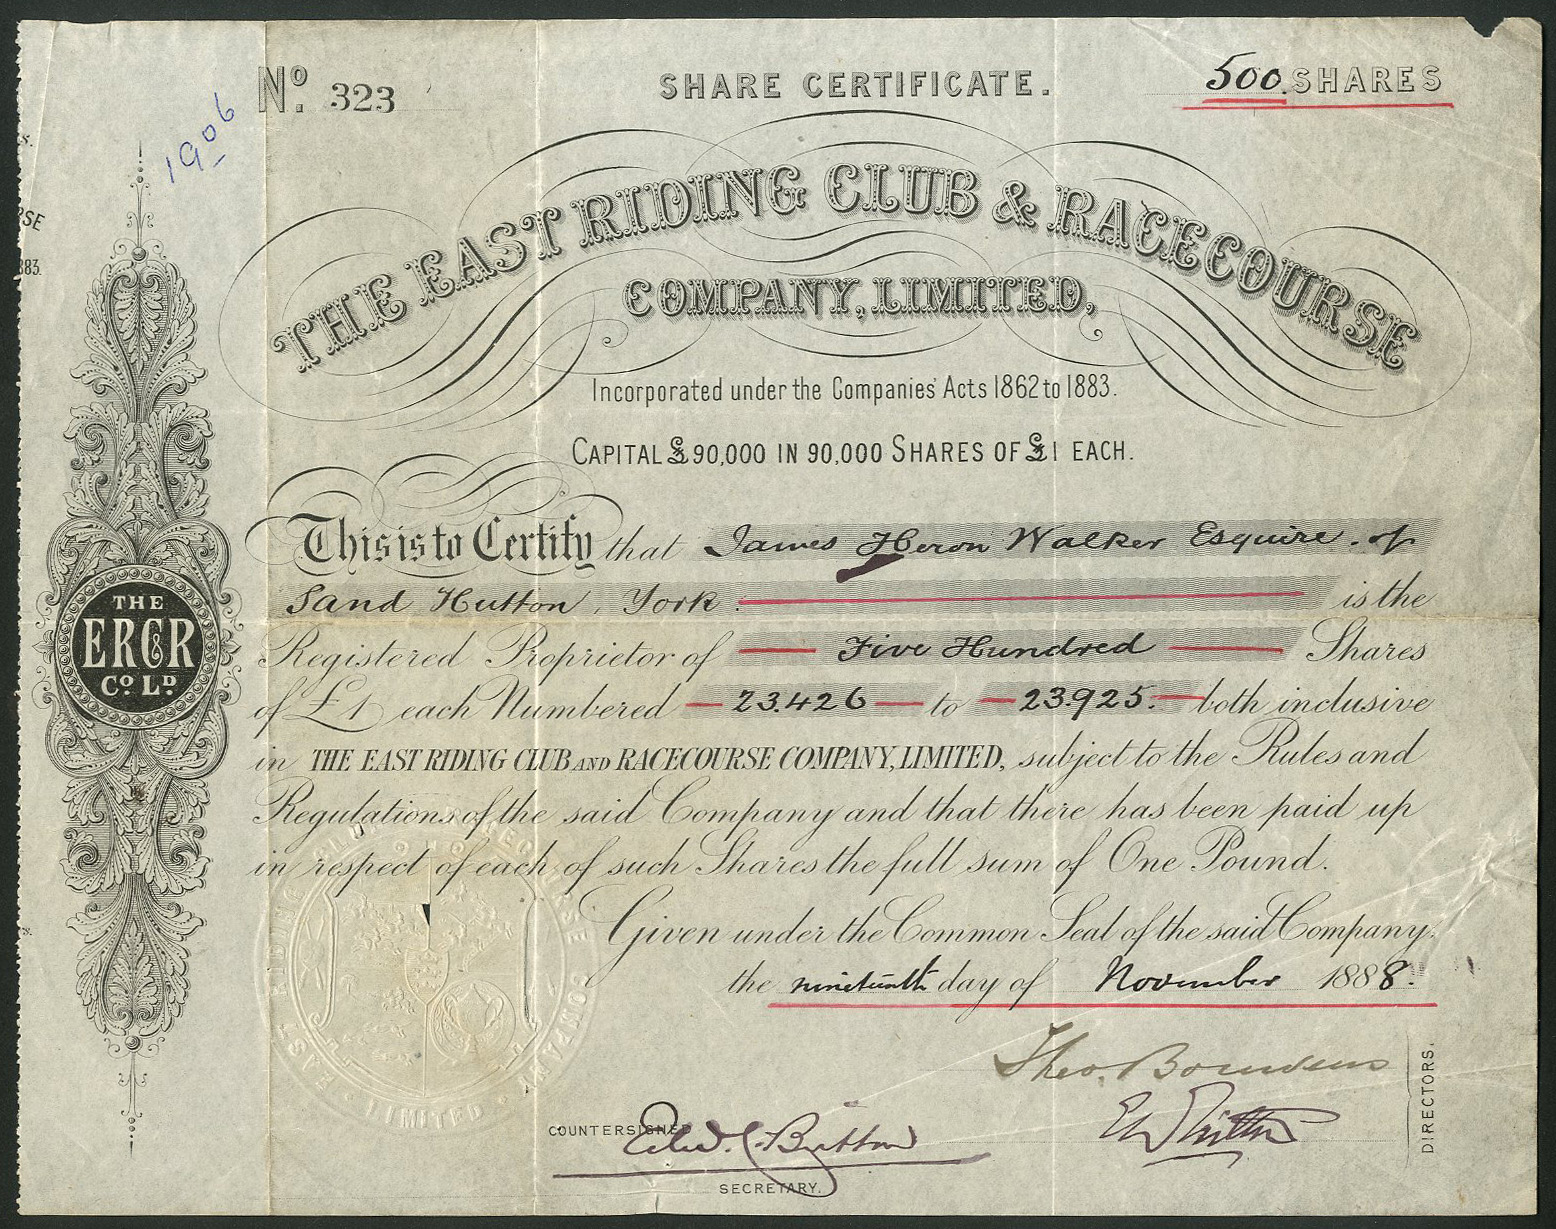 No. 323
SHARE CERTIFICATE.
500 SHARES
1906
S.
RSE
883.
THE EAST RIDING CLUB & RACECOURSE
COMPANY, LIMITED,
Incorporated under the Companies' Acts 1862 to 1883.
CAPITAL £90,000 IN 90,000 SHARES OF £1 EACH.
This is to Certify that James Heron Walker Esquire. of
Sand Hutton, York. is the
Registered Proprietor of Five Hundred Shares
of £1 each Numbered 23.426 to 23.925. both inclusive
in THE EAST RIDING CLUB AND RACECOURSE COMPANY, LIMITED, subject to the Rules and
Regulations of the said Company and that there has been paid up
in respect of each of such Shares the full sum of One Pound.
Given under the Common Seal of the said Company,
the nineteenth day of November 1888.
THE
ERC&R
CO. LD.
EAST RIDING CLUB & RACECOURSE COMPANY
LIMITED
Theo.
DIRECTORS.
COUNTERSIGNED
Edw. C. Britton
SECRETARY.